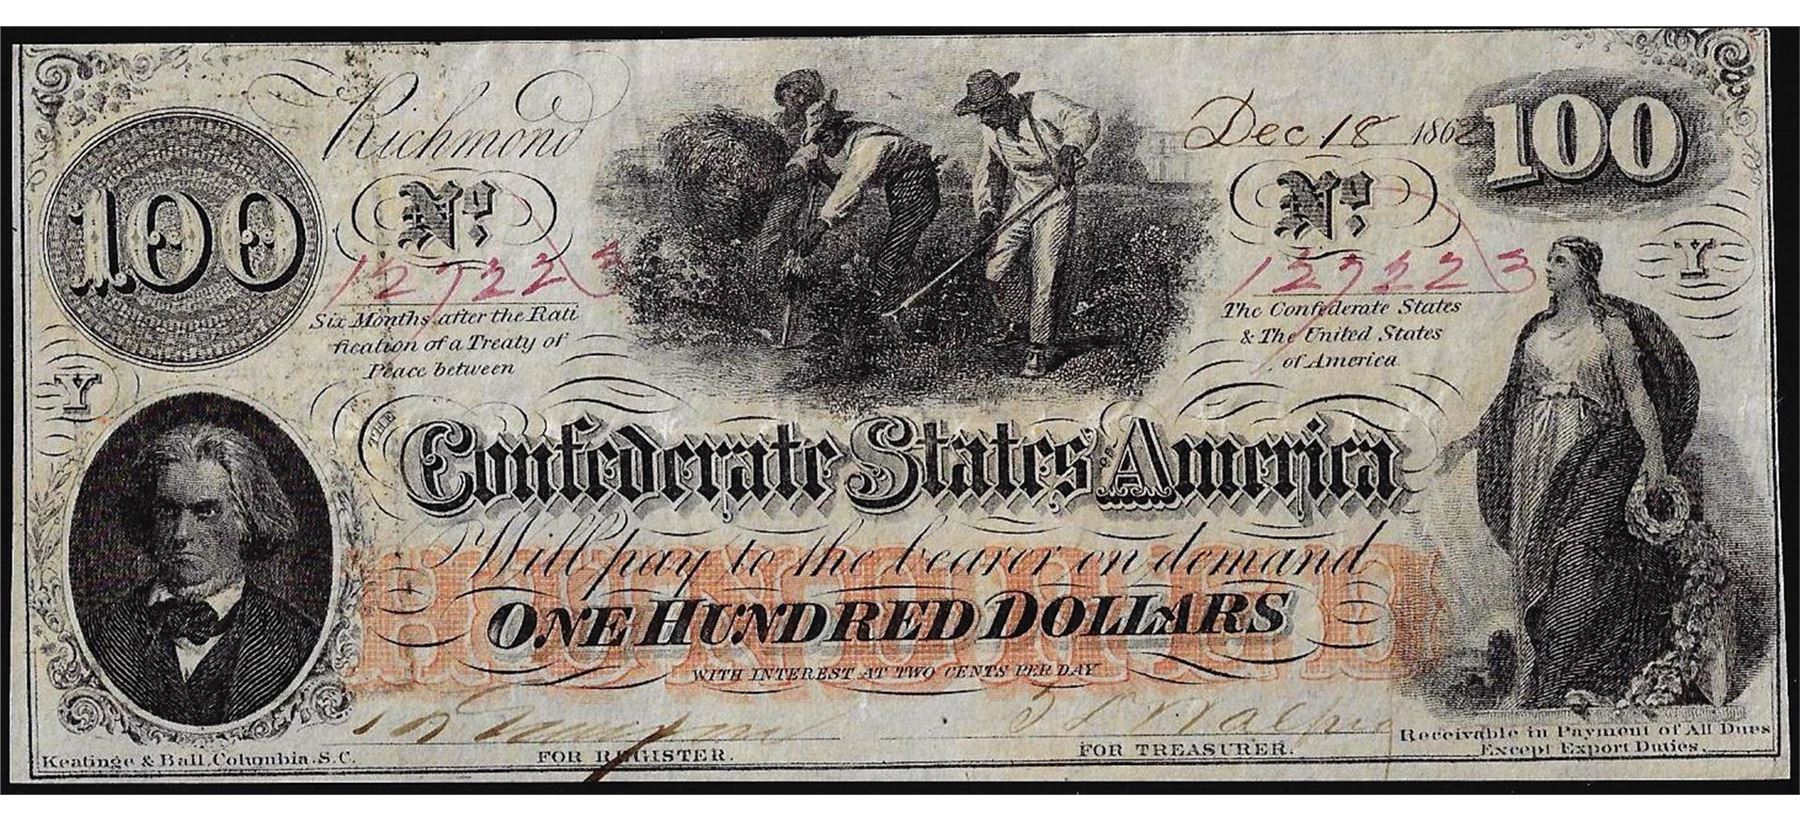 Richmond
Dec 18 1862
100
100
No.
No.
127223
127223
Six Months after the Rati
fication of a Treaty of
Peace between
The Confederate States
& The United States
of America
Y
Y
THE Confederate States OF America
Will pay to the bearer on demand
HUNDRED
ONE HUNDRED DOLLARS
WITH INTEREST AT TWO CENTS PER DAY
FOR REGISTER.
FOR TREASURER.
Keatinge & Ball, Columbia, S.C.
Receivable in Payment of All Dues
Except Export Duties.